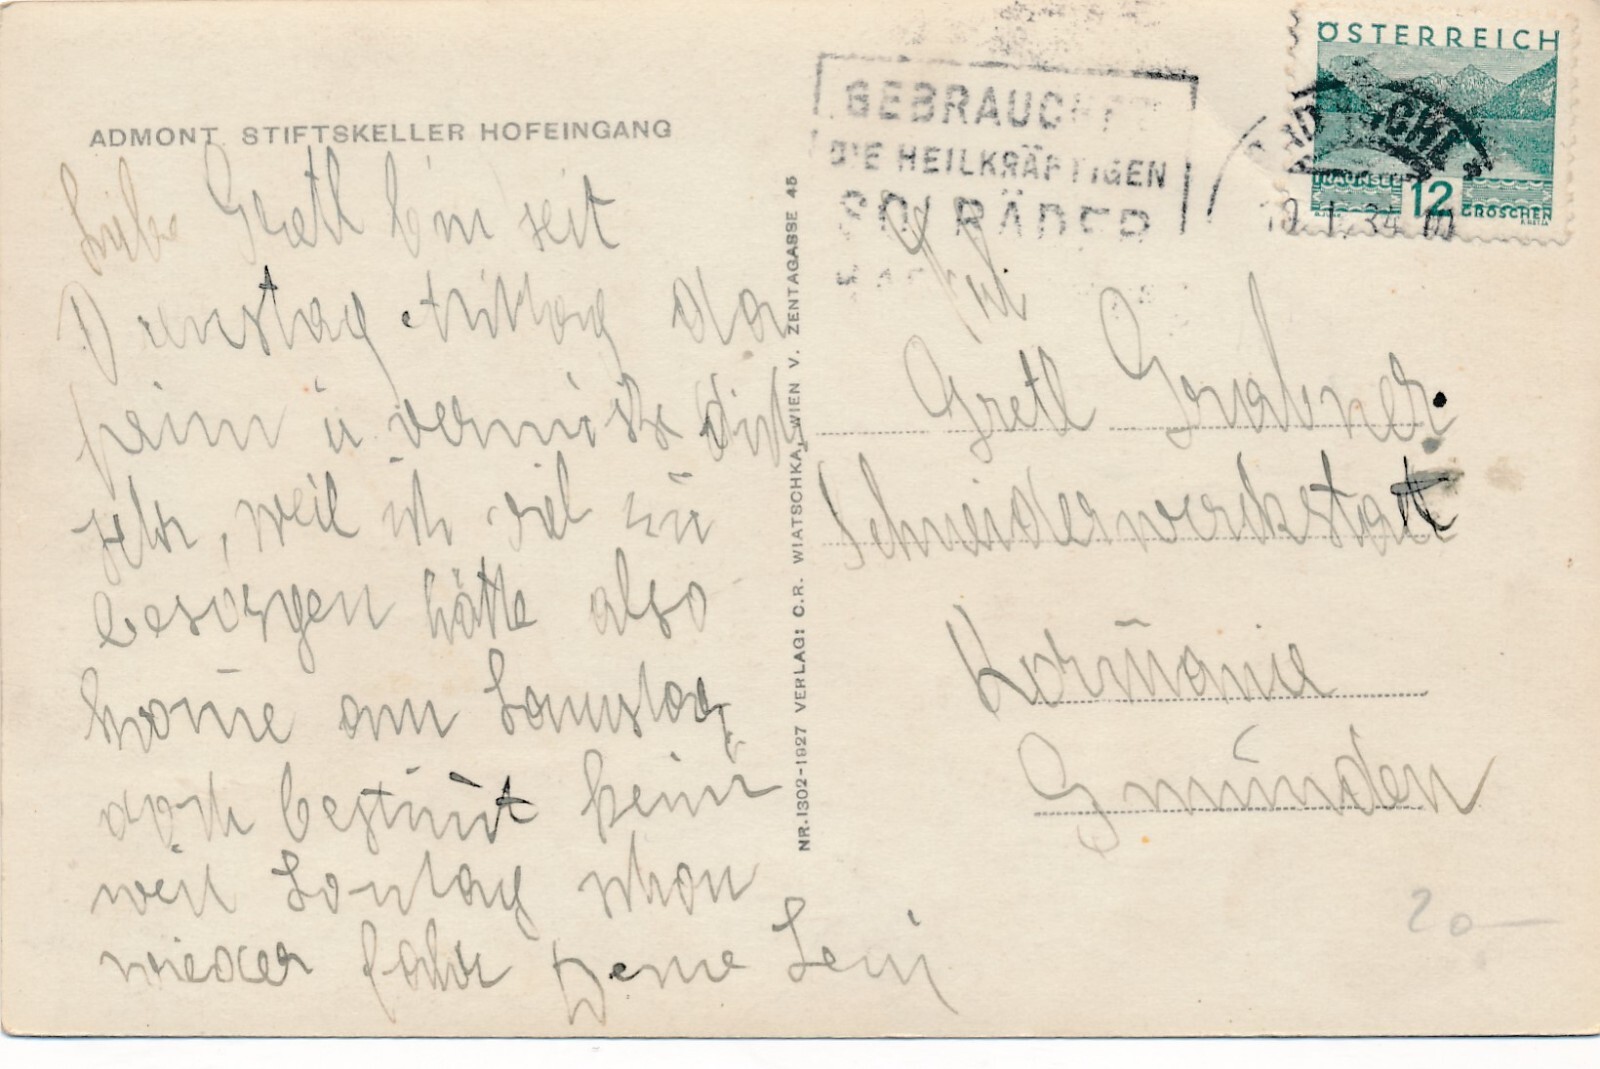 ADMONT STIFTSKELLER HOFEINGANG
Liebe Gretl bin seit
Dienstag Mittag da
heim u vermisse dich
sehr, weil ich viel zu
besorgen hätte also
kome am Samstag
doch bestimt heim
weil Sontag schon
wieder fahr Deine Leni
NR. 1302-1927 VERLAG: C.R. WIATSCHKA, WIEN V. ZENTAGASSE 45
GEBRAUCHT
DIE HEILKRÄFTIGEN
BÄDER
ÖSTERREICH
TRAUNSEE 12 GROSCHEN
Frl.
Gretl Grabner
Schneiderwerkstatt
Gmünden
20—